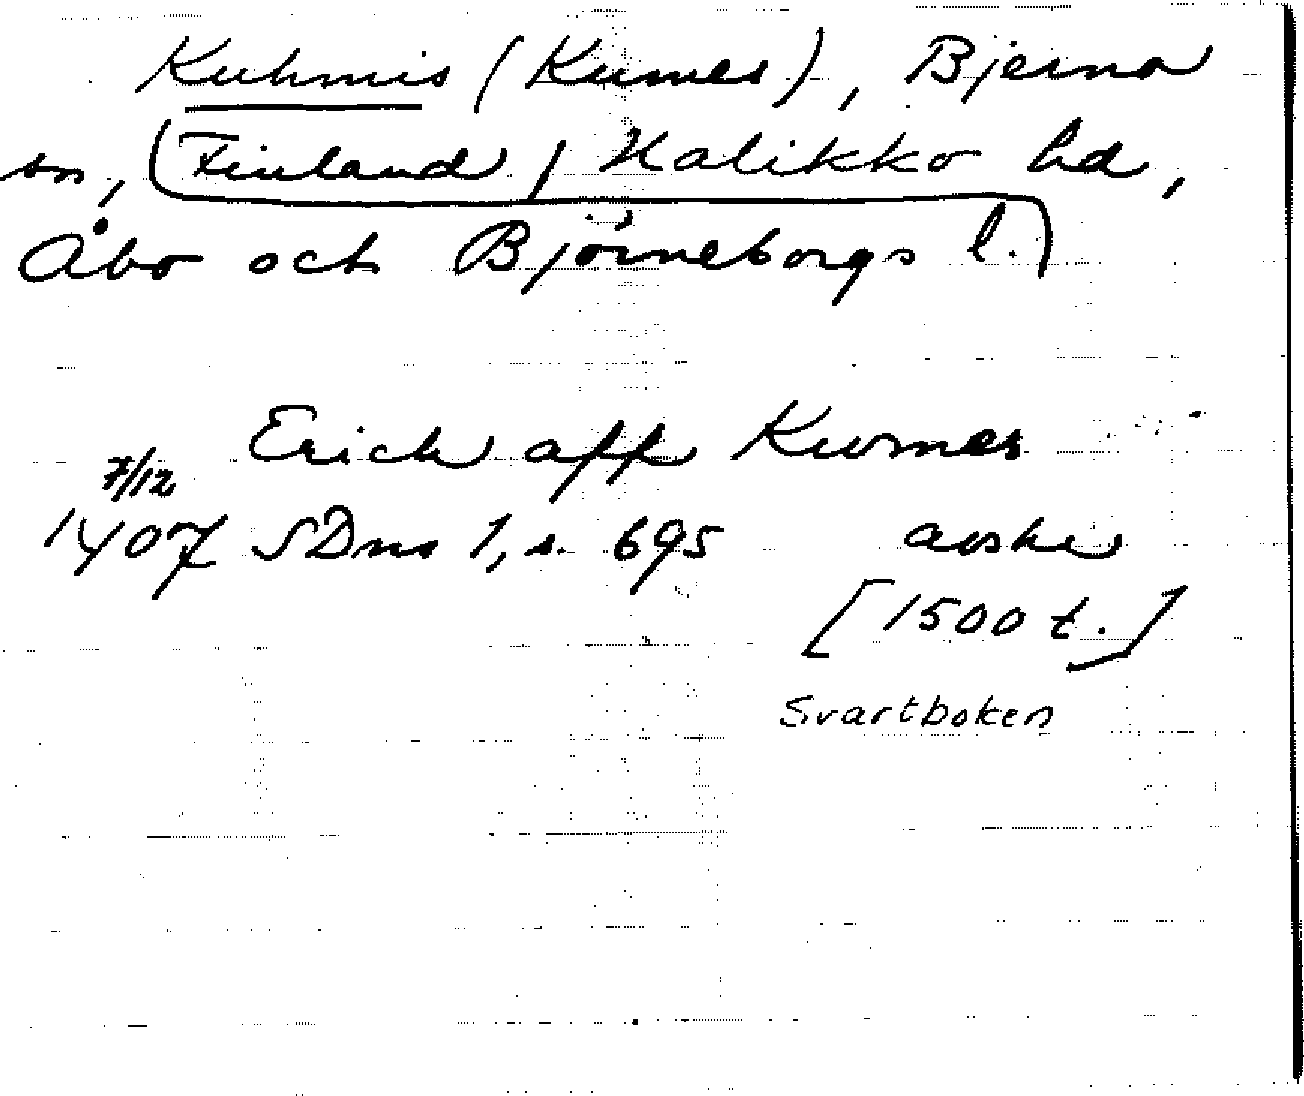 Kuhmis (Kumes), Bjerno
sn, (Finland, Halikko hd,
Åbo och Björneborgs l.)
Erich aff Kwmes
7/12
1407 SDns 1, s. 695 avskr
[1500 t.]
Svartboken